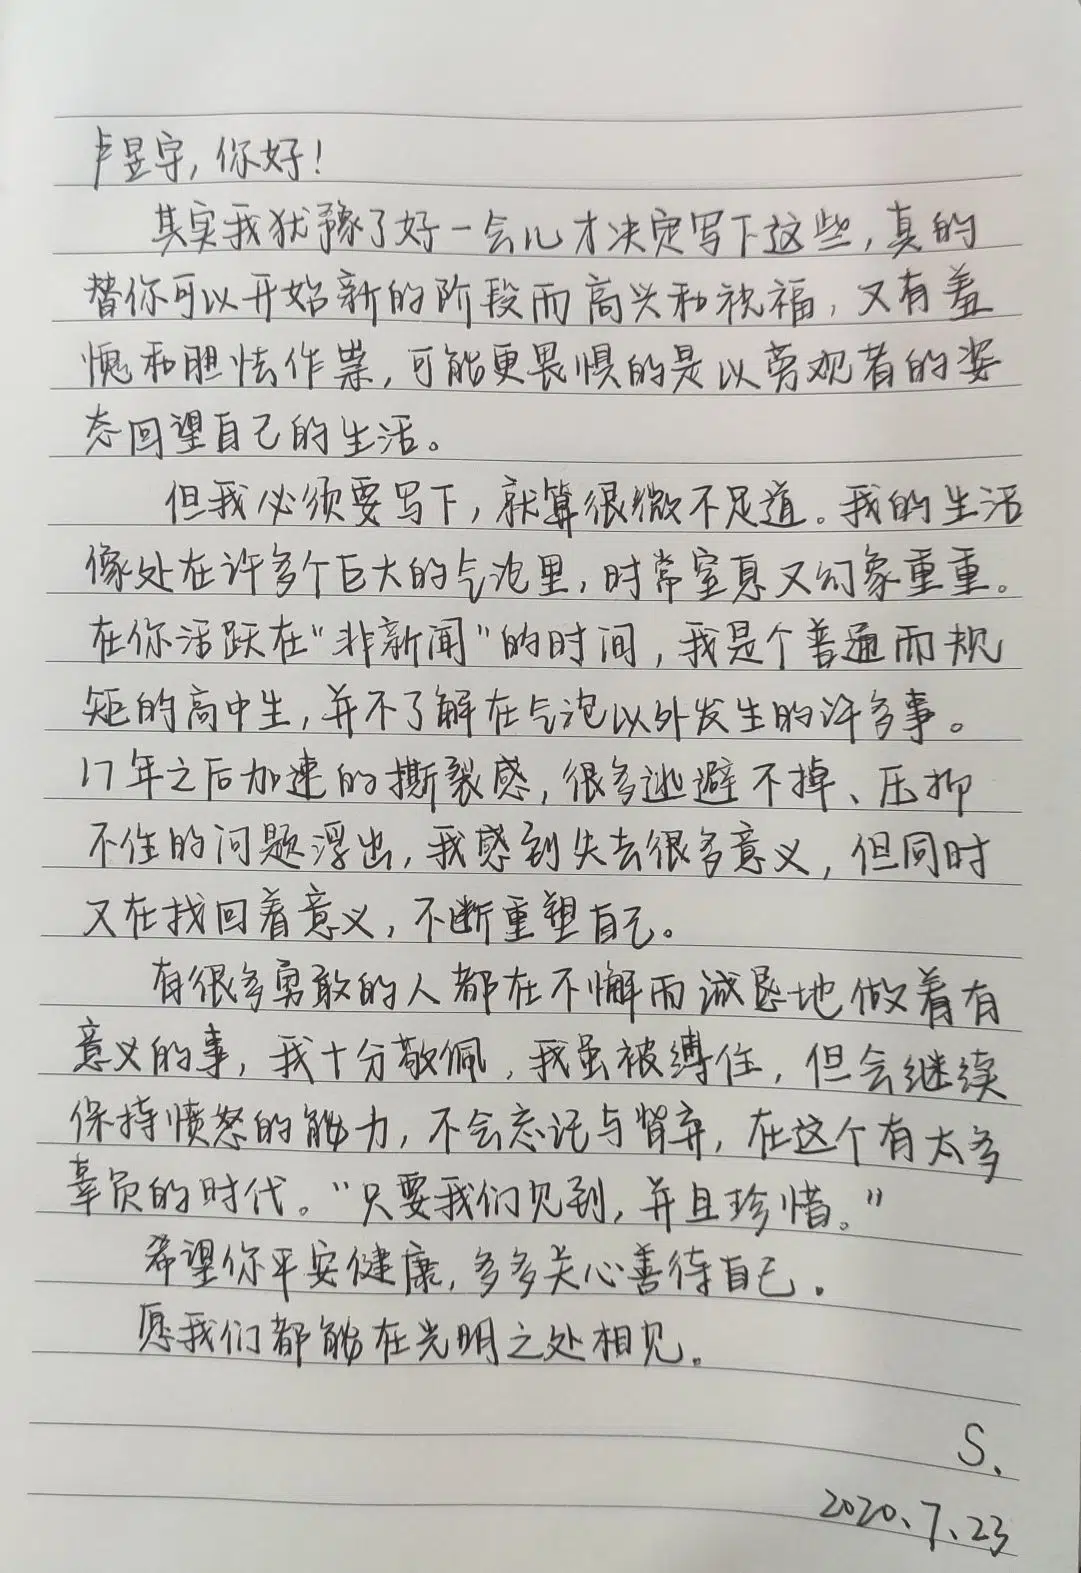 卢昱宇, 你好!
其实我犹豫了好一会儿才决定写下这些, 真的
替你可以开始新的阶段而高兴和祝福, 又有羞
愧和胆怯作祟, 可能更畏惧的是以旁观者的姿
态回望自己的生活。
但我必须要写下, 就算很微不足道。我的生活
像处在许多个巨大的气泡里, 时常窒息又幻象重重。
在你活跃在“非新闻”的时间, 我是个普通而规
矩的高中生, 并不了解在气泡以外发生的许多事。
17年之后加速的撕裂感, 很多逃避不掉、压抑
不住的问题浮出, 我感到失去很多意义, 但同时
又在找回着意义, 不断重塑自己。
有很多勇敢的人都在不懈而诚恳地做着有
意义的事, 我十分敬佩, 我虽被缚住, 但会继续
保持愤怒的能力, 不会忘记与背弃, 在这个有太多
辜负的时代。“只要我们见到, 并且珍惜。”
希望你平安健康, 多多关心善待自己.
愿我们都能在光明之处相见。
S.
2020.7.23